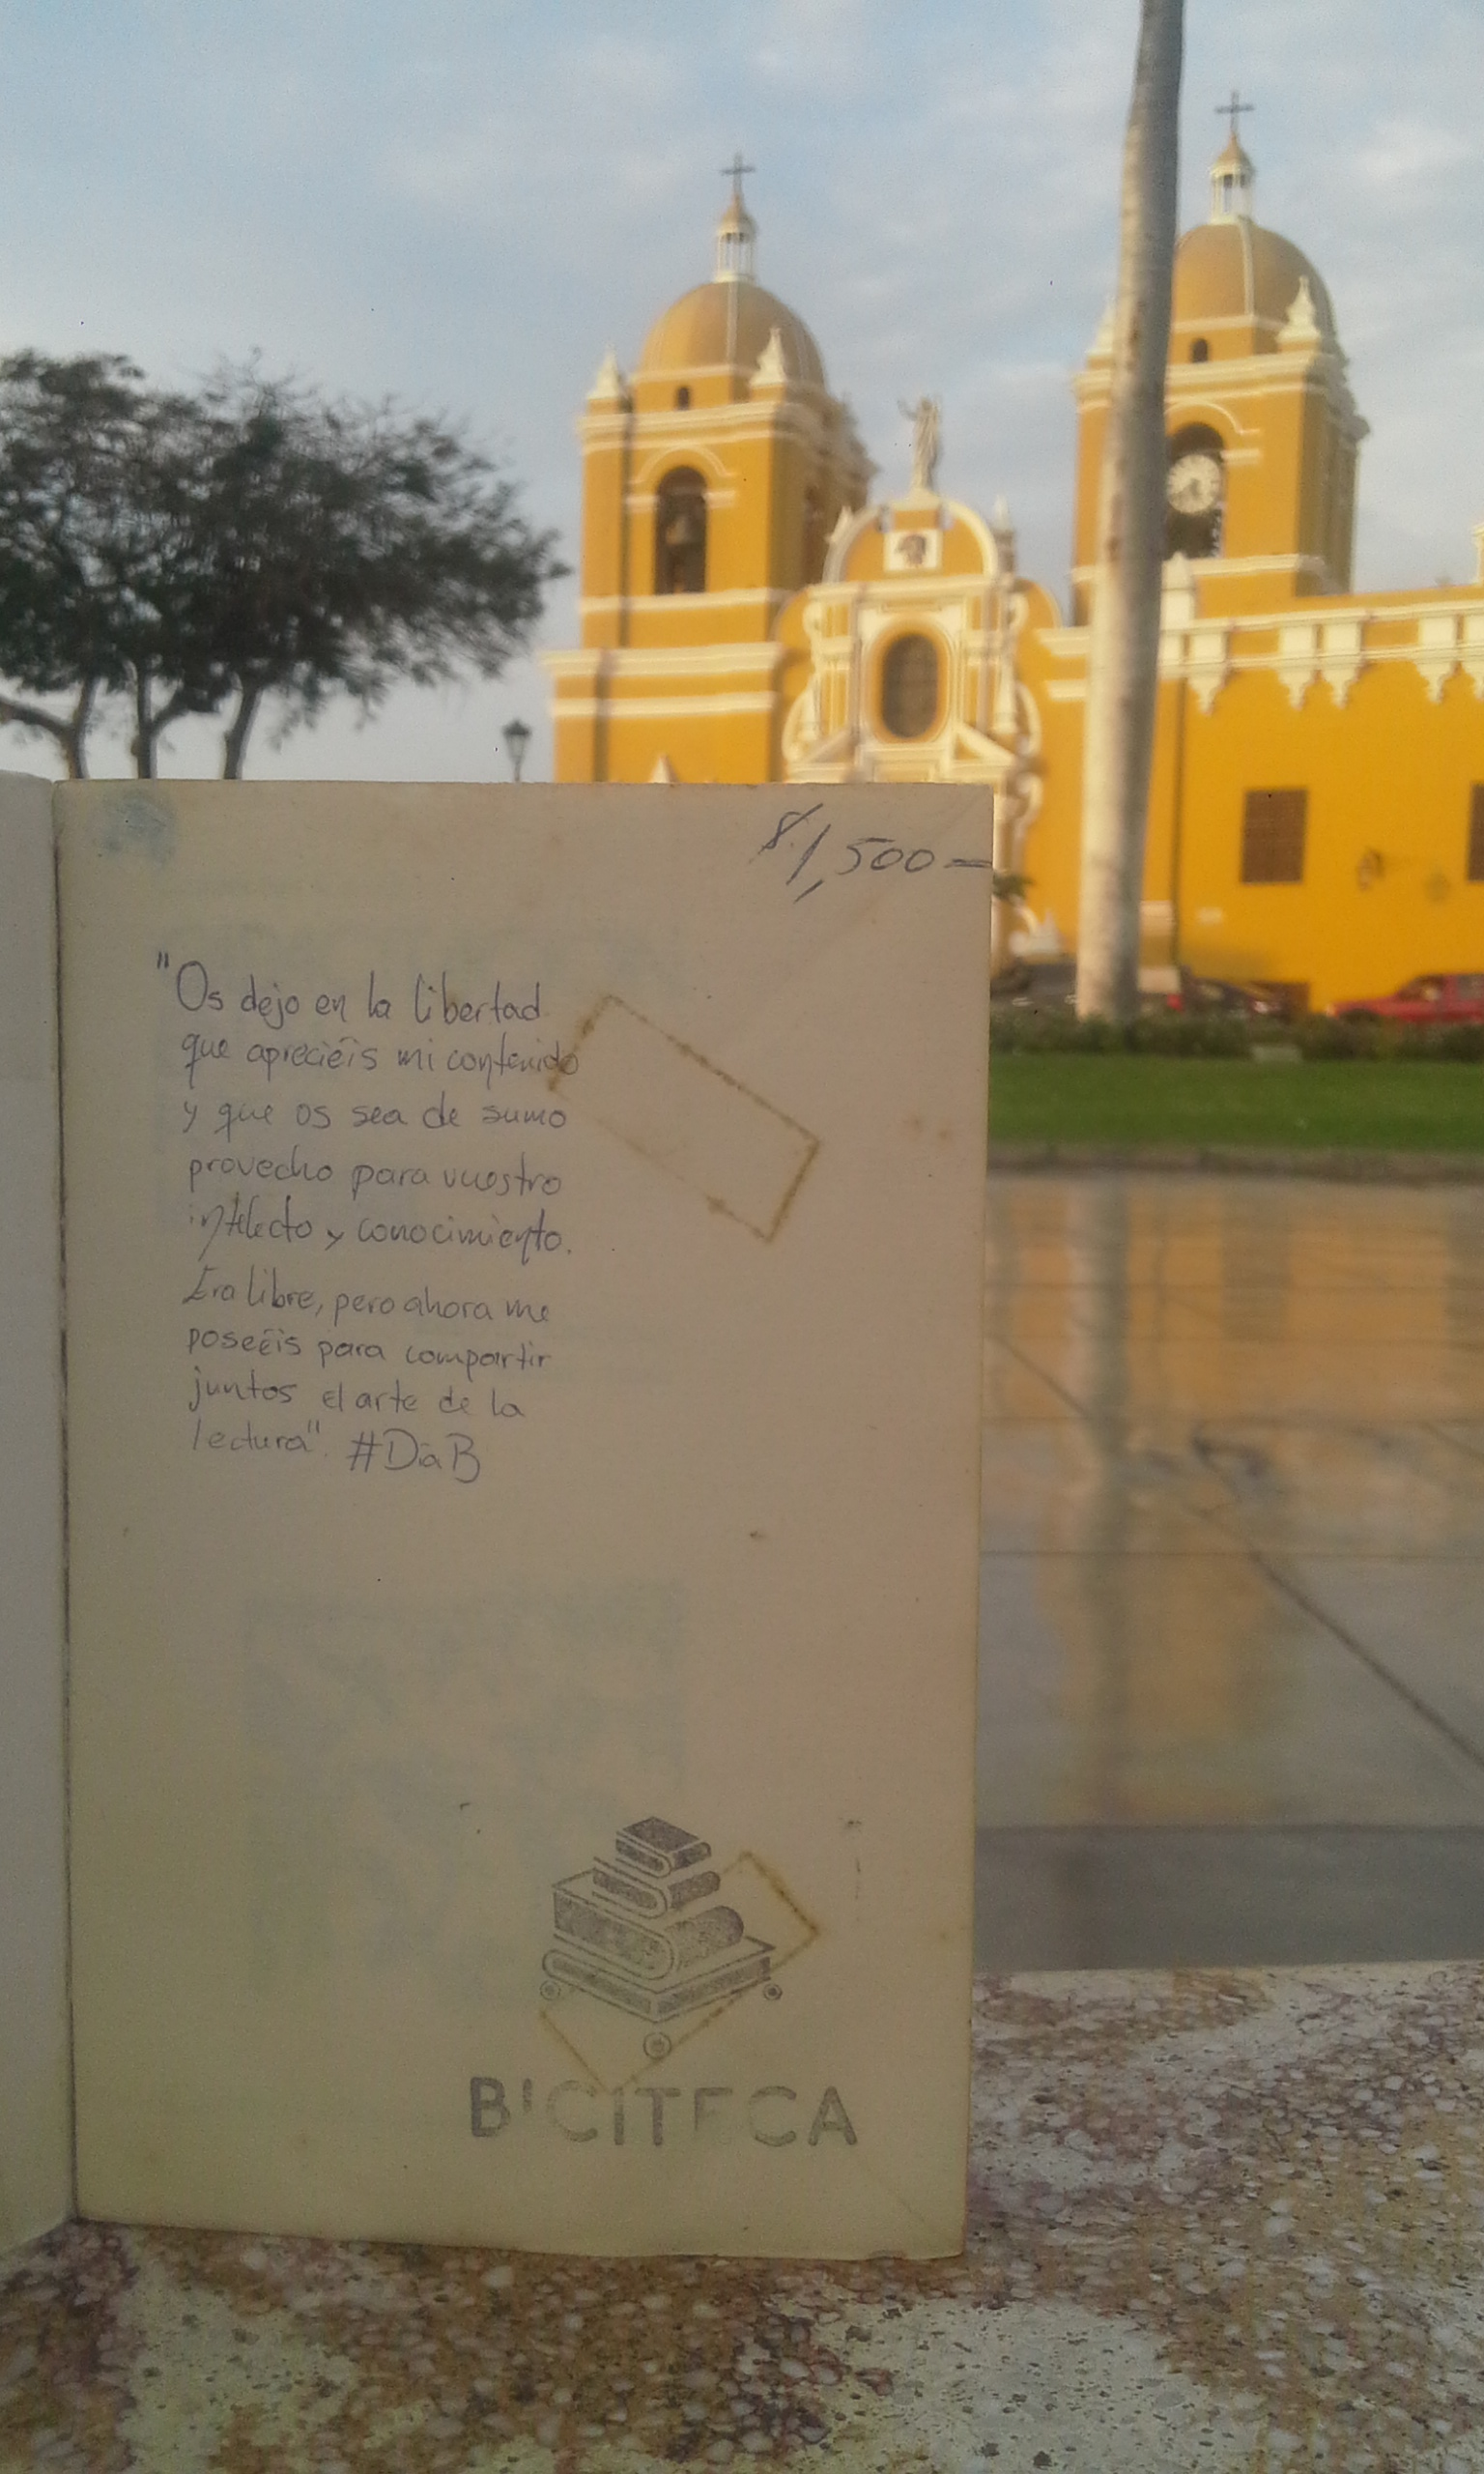 $1,500=
"Os dejo en la libertad
que apreciéis mi contenido
y que os sea de sumo
provecho para vuestro
intelecto y conocimiento.
Era libre, pero ahora me
poseéis para compartir
juntos el arte de la
lectura". #DíaB
BICITECA